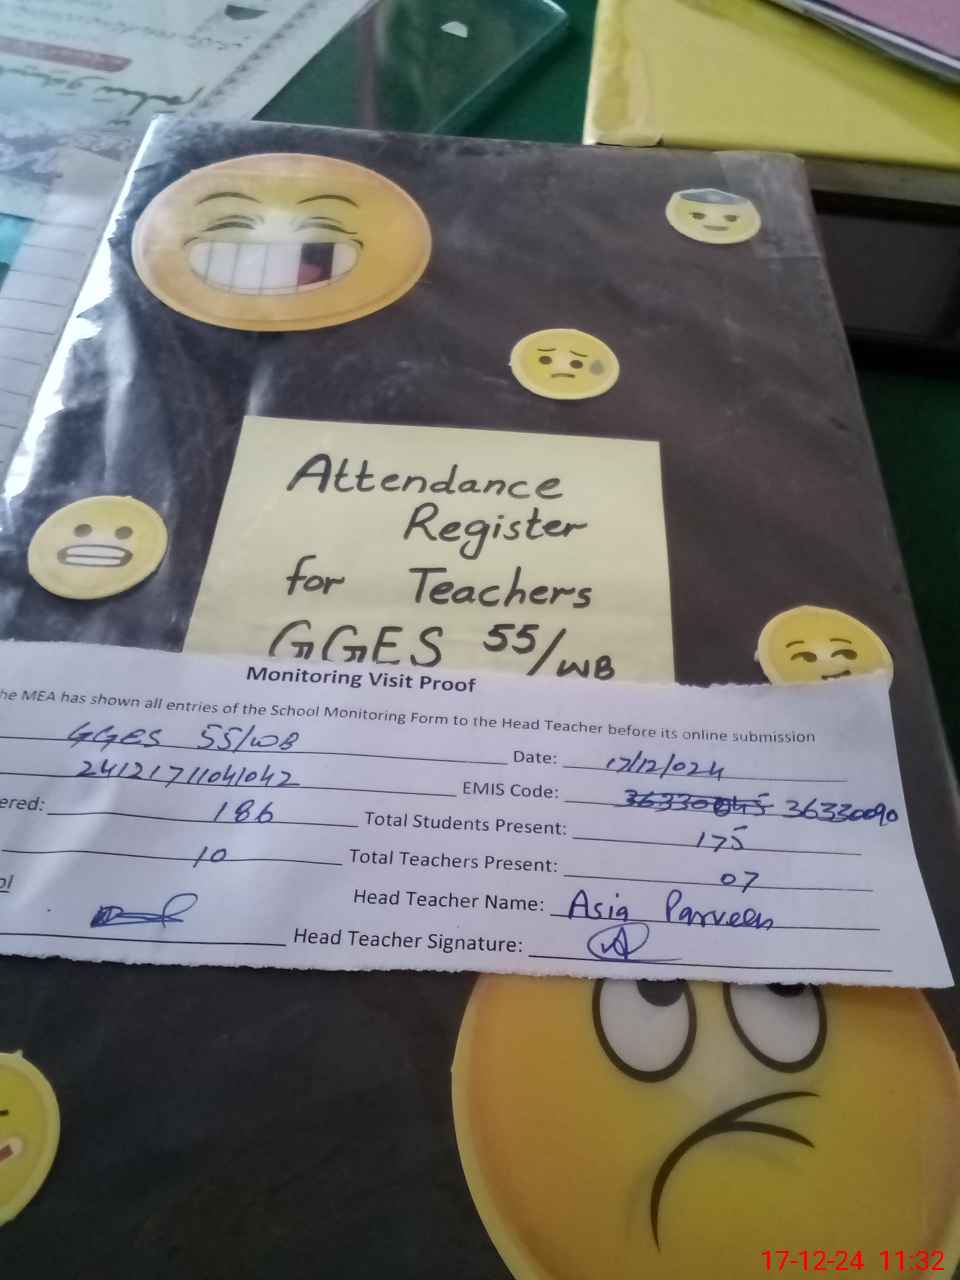 Attendance
Register
for Teachers
GGES 55/WB
Monitoring Visit Proof
he MEA has shown all entries of the School Monitoring Form to the Head Teacher before its online submission
GGES 55/WB Date: 17/12/024
24121711041042 EMIS Code: 36330045 36330090
ered: 186 Total Students Present: 175
10 Total Teachers Present: 07
ol Head Teacher Name: Asia Parveen
Head Teacher Signature:
17-12-24 11:32